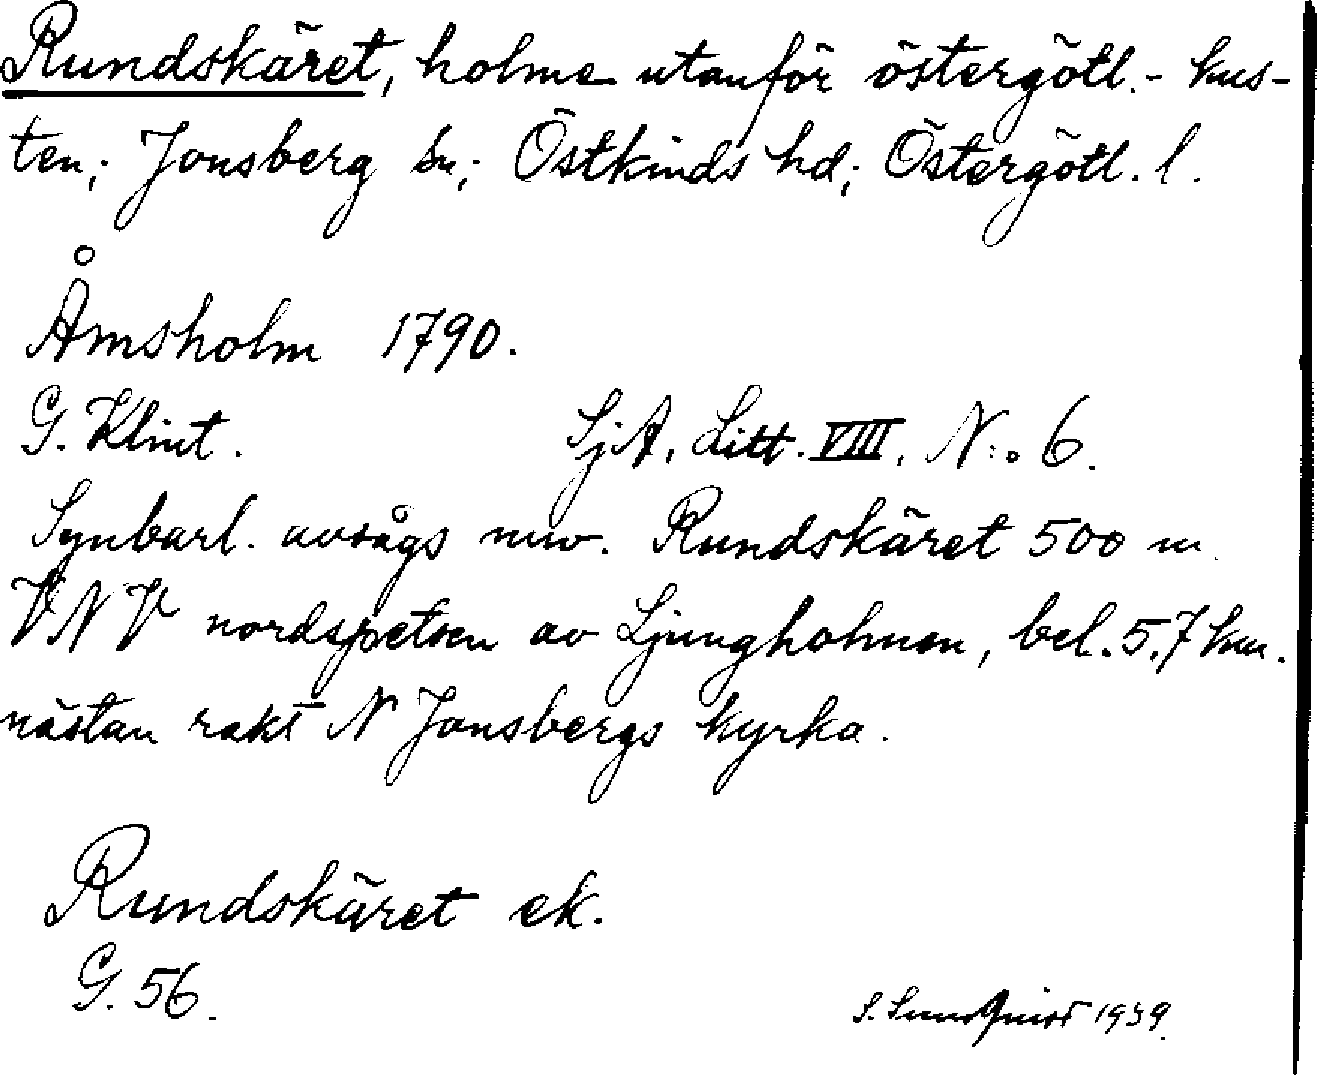 Rundskäret, holme utanför östergötl.- kus-
ten; Jonsberg sn; Östkinds hd; Östergötl. l.
Åmsholm 1790.
G. Klint. SjA, Litt. VIII, N:o 6.
Synbarl. avsågs nuv. Rundskäret 500 m
VNV nordspetsen av Ljungholmen, bel. 5,7 km.
nästan rakt N Jonsbergs kyrka.
Rundskäret ek.
G. 56.
S. Sundquist 1939.